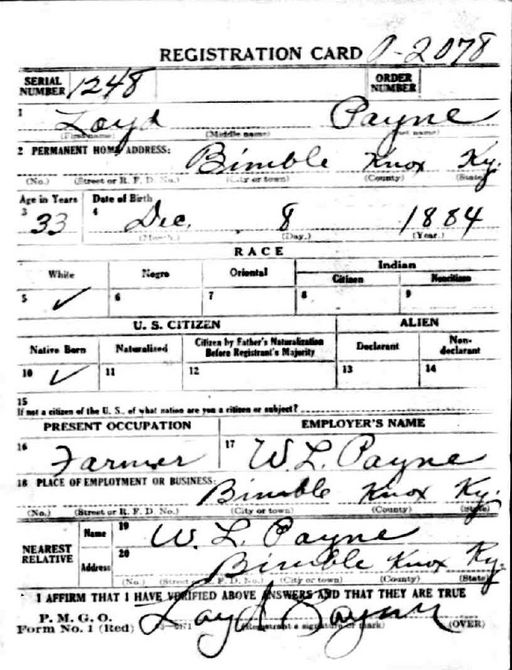 REGISTRATION CARD 0-2078
SERIAL NUMBER 1248 ORDER NUMBER
1 Loyd Payne
(First name) (Middle name) (Last name)
2 PERMANENT HOME ADDRESS: Bimble Knox Ky.
(No.) (Street or R. F. D. No.) (City or town) (County) (State)
Age in Years Date of Birth
3 33 4 Dec. 8 1884
(Month.) (Day.) (Year.)
RACE
White Negro Oriental Indian
Citizen Noncitizen
5 ✓ 6 7 8 9
U. S. CITIZEN ALIEN
Native Born Naturalized Citizen by Father's Naturalization Before Registrant's Majority Declarant Non-declarant
10 ✓ 11 12 13 14
15
If not a citizen of the U. S., of what nation are you a citizen or subject?
PRESENT OCCUPATION EMPLOYER'S NAME
16 Farmer 17 W. L. Payne
18 PLACE OF EMPLOYMENT OR BUSINESS: Bimble Knox Ky.
(No.) (Street or R. F. D. No.) (City or town) (County) (State)
NEAREST RELATIVE Name 19 W. L. Payne
Address 20 Bimble Knox Ky.
(No.) (Street or R. F. D. No.) (City or town) (County) (State)
I AFFIRM THAT I HAVE VERIFIED ABOVE ANSWERS AND THAT THEY ARE TRUE
P. M. G. O.
Form No. 1 (Red) Loyd Payne (Registrant's signature or mark) (OVER)